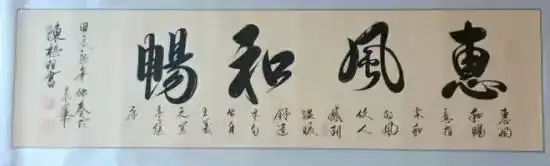 惠風和暢
惠風
和暢
意指
柔和
的風
使人
感到
温暖
舒適
本句
出自
王羲
之蘭
亭集
序
年仲春於
京華
陳 書